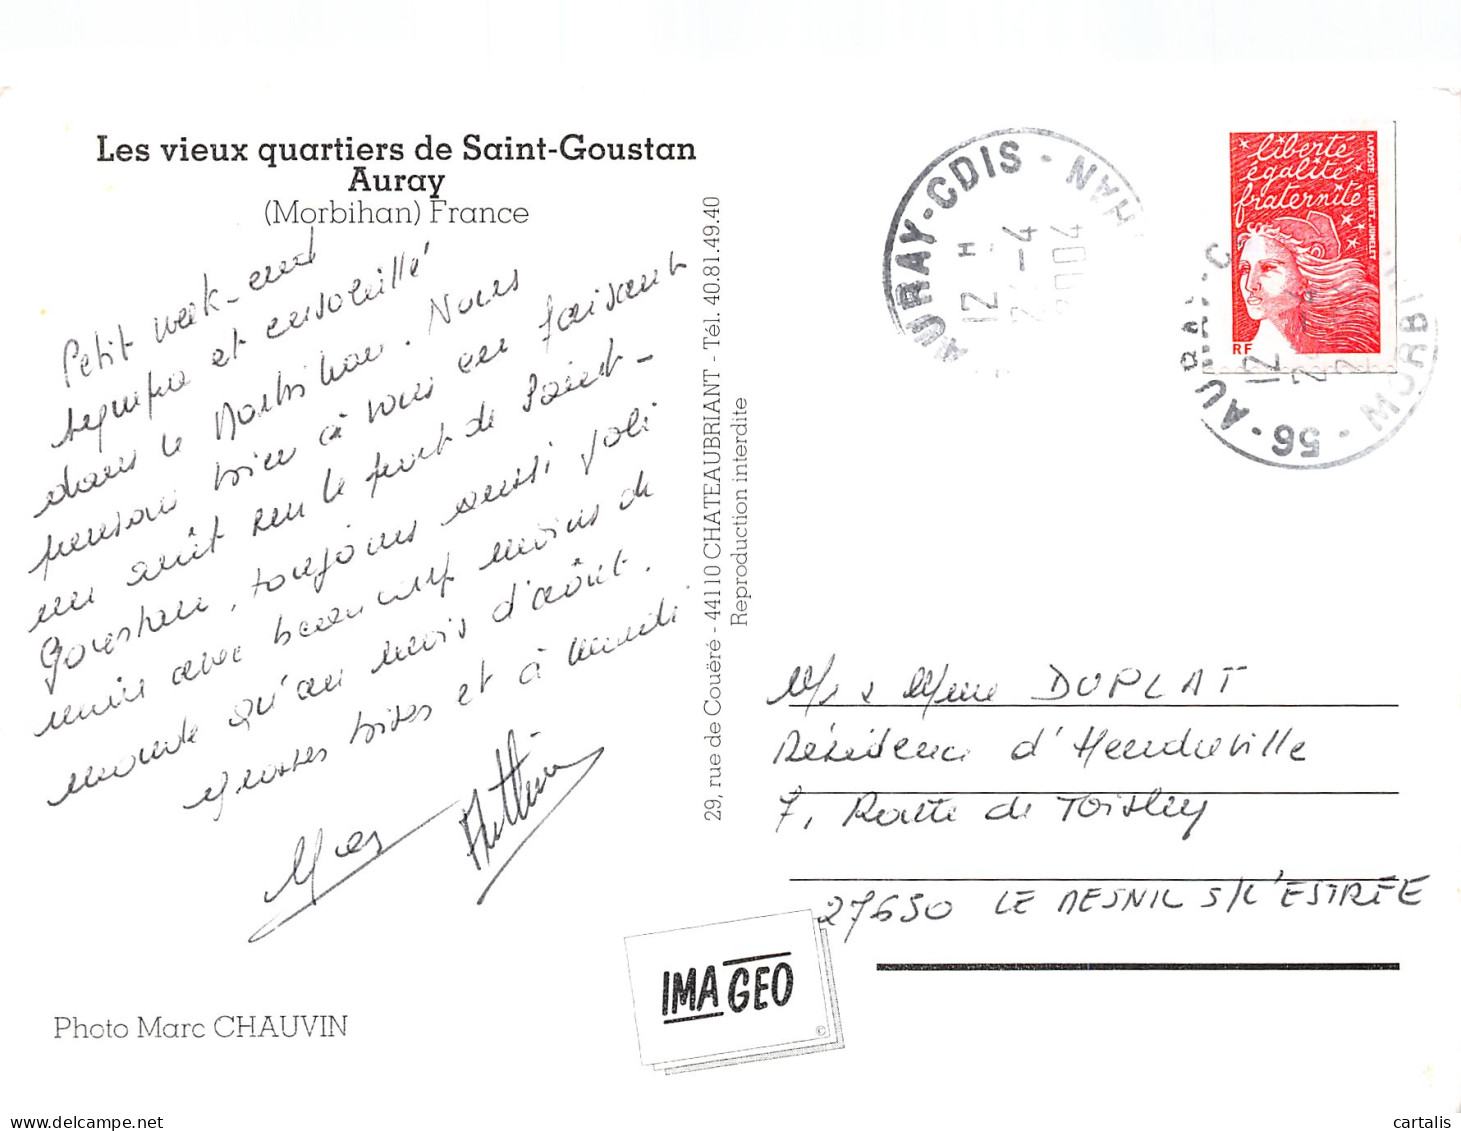 Les vieux quartiers de Saint-Goustan
Auray
(Morbihan) France
Petit week-end
sympa et ensoleillé
dans le Morbihan. Nous
pensons bien à vous en faisant
un arrêt sur le port de Saint-
Goustan, toujours aussi joli
mais avec beaucoup moins de
monde qu'au mois d'août.
Grosses bises et à mardi
29, rue de Couëré - 44110 CHATEAUBRIANT - Tél. 40.81.49.40
Reproduction interdite
AURAY-CDIS - MAN
12 H
2004
liberté
égalité
fraternité
LAPOSTE LUQUET-JUMELET
RF
56-AURAY-C
MORBIHAN
12
Mr & Mme DUPLAT
Résidence d'Heudreville
7, Route de
27650 LE MESNIL S/L'ESTRÉE
IMAGEO
©
Photo Marc CHAUVIN
cartalis